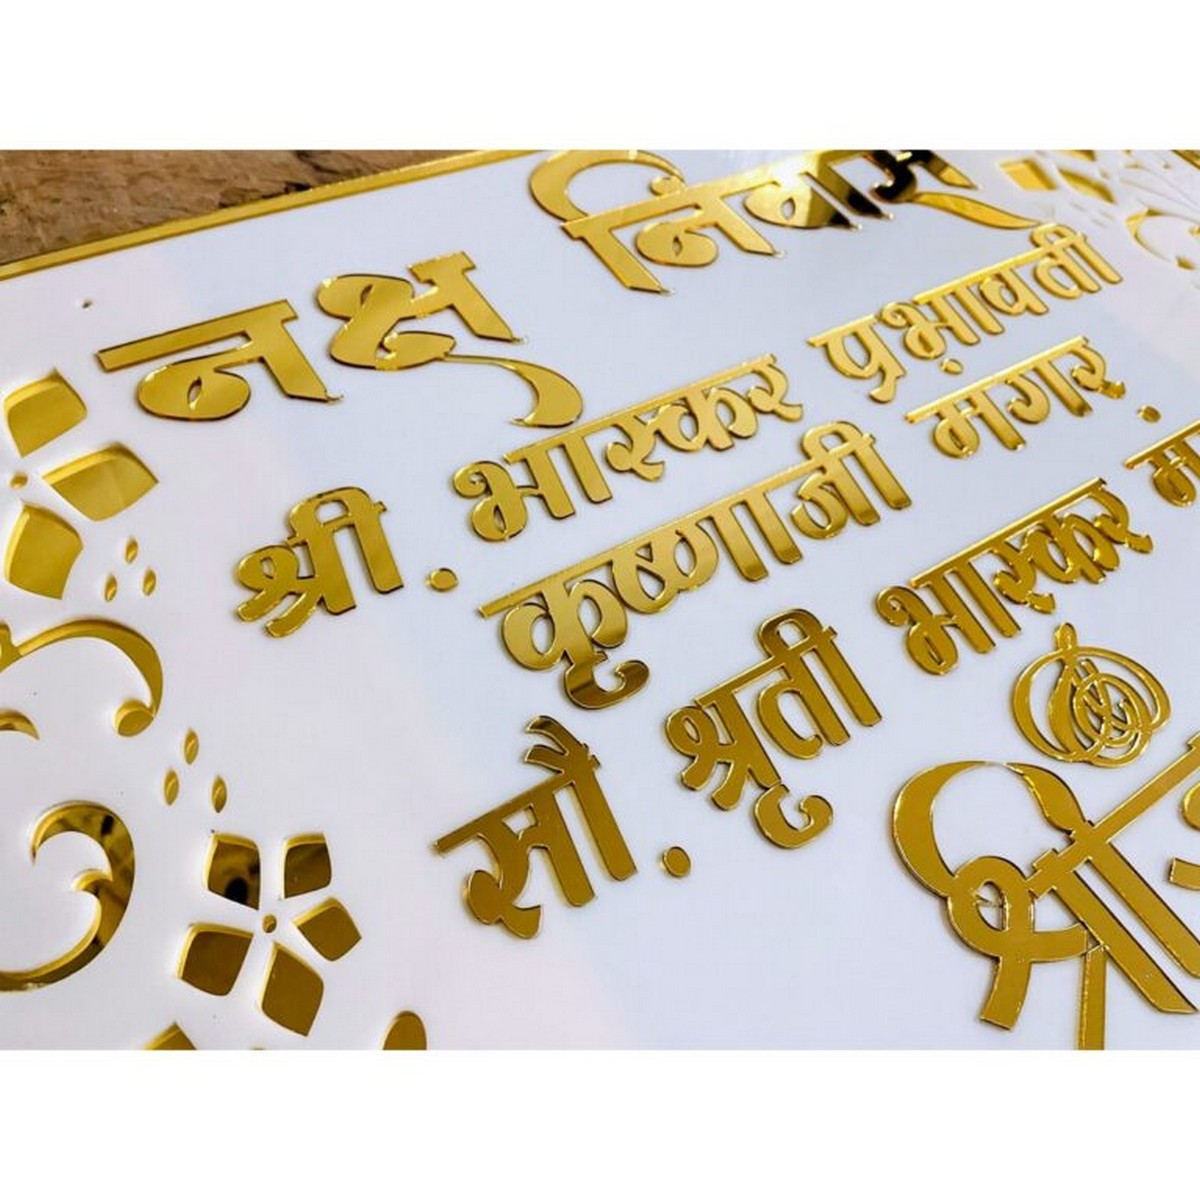 नक्ष निवास
श्री. भास्कर प्रभावती
कृष्णाजी मगर
सौ. श्रुती भास्कर
श्री